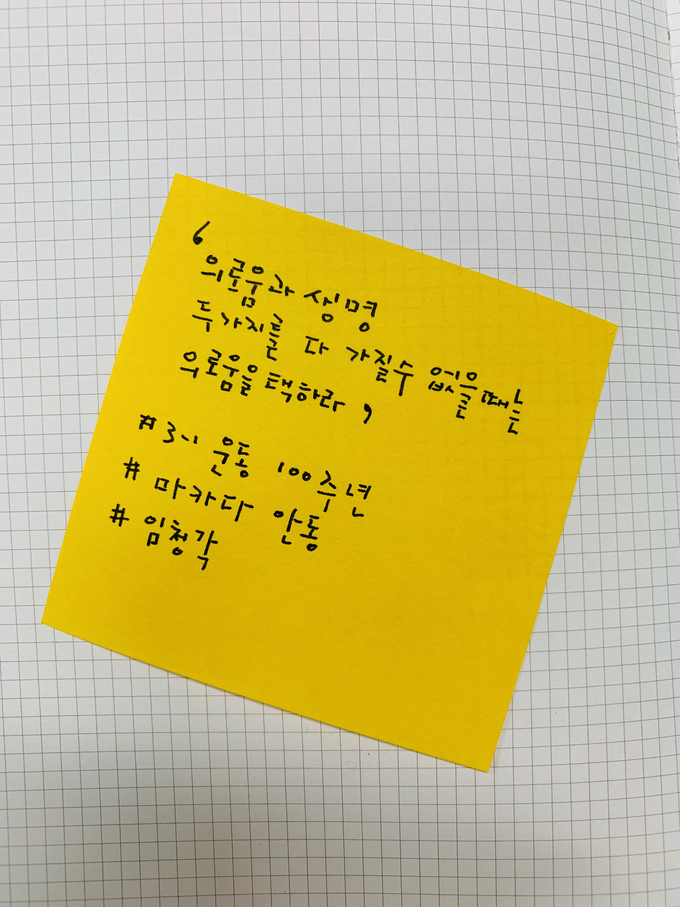 ‘
의로움과 생명
두가지를 다 가질수 없을때는
의로움을 택하라 ’
#3·1 운동 100주년
# 마카다 안동
# 임청각